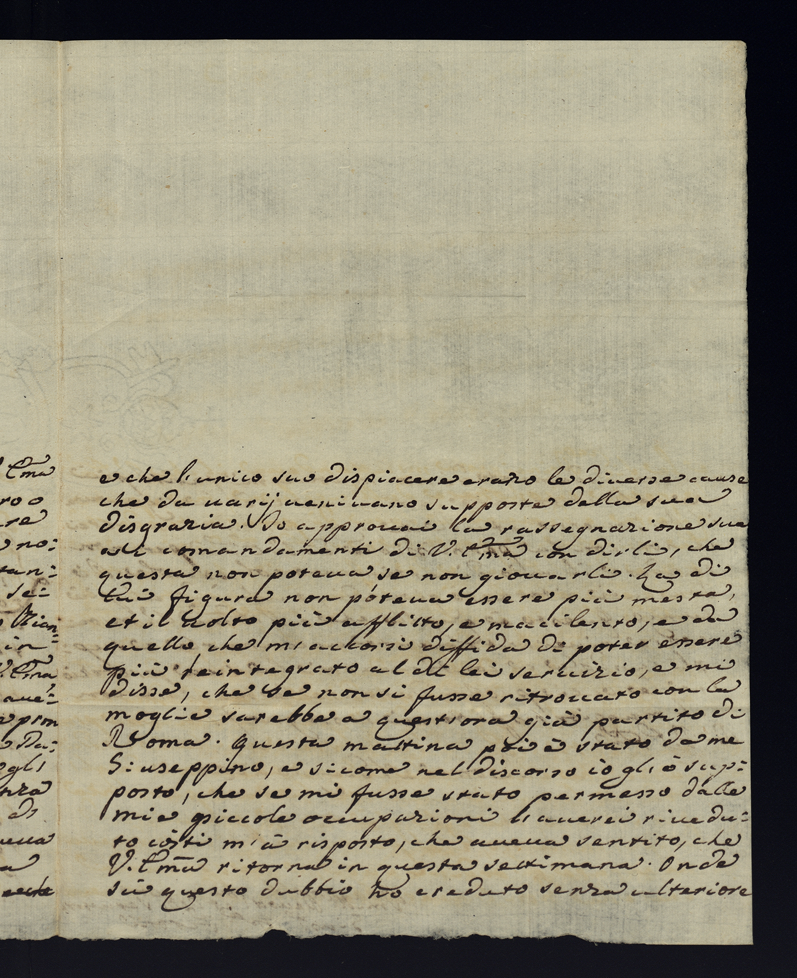 e che l'unico suo dispiacere erano le diverse cause
che da varij venivano supposte della sua
disgrazia. Io approvai la rassegnazione sua
alli comandamenti di V. Em̃a con dirli, che
questa non poteva se non giovarli. La di
lui figura non poteva essere più mesta,
et il volto più afflitto, e macilento, e da
quello che mi accorsi diffida di poter essere
più reintegrato al di lei servizio, e mi
disse, che se non si fusse ritrovato con la
moglie sarebbe a quest'ora già partito di
Roma. Questa mattina poi è stato da me
Giuseppino, e siccome nel discorso io gli ò sup:
posto, che se mi fusse stato permesso dalle
mie piccole occupazioni l'averei rivedu:
to costì m'à risposto, che aveva sentito, che
V. Em̃a ritorna in questa settimana. Onde
sù questo dubbio hò creduto senza ulteriore